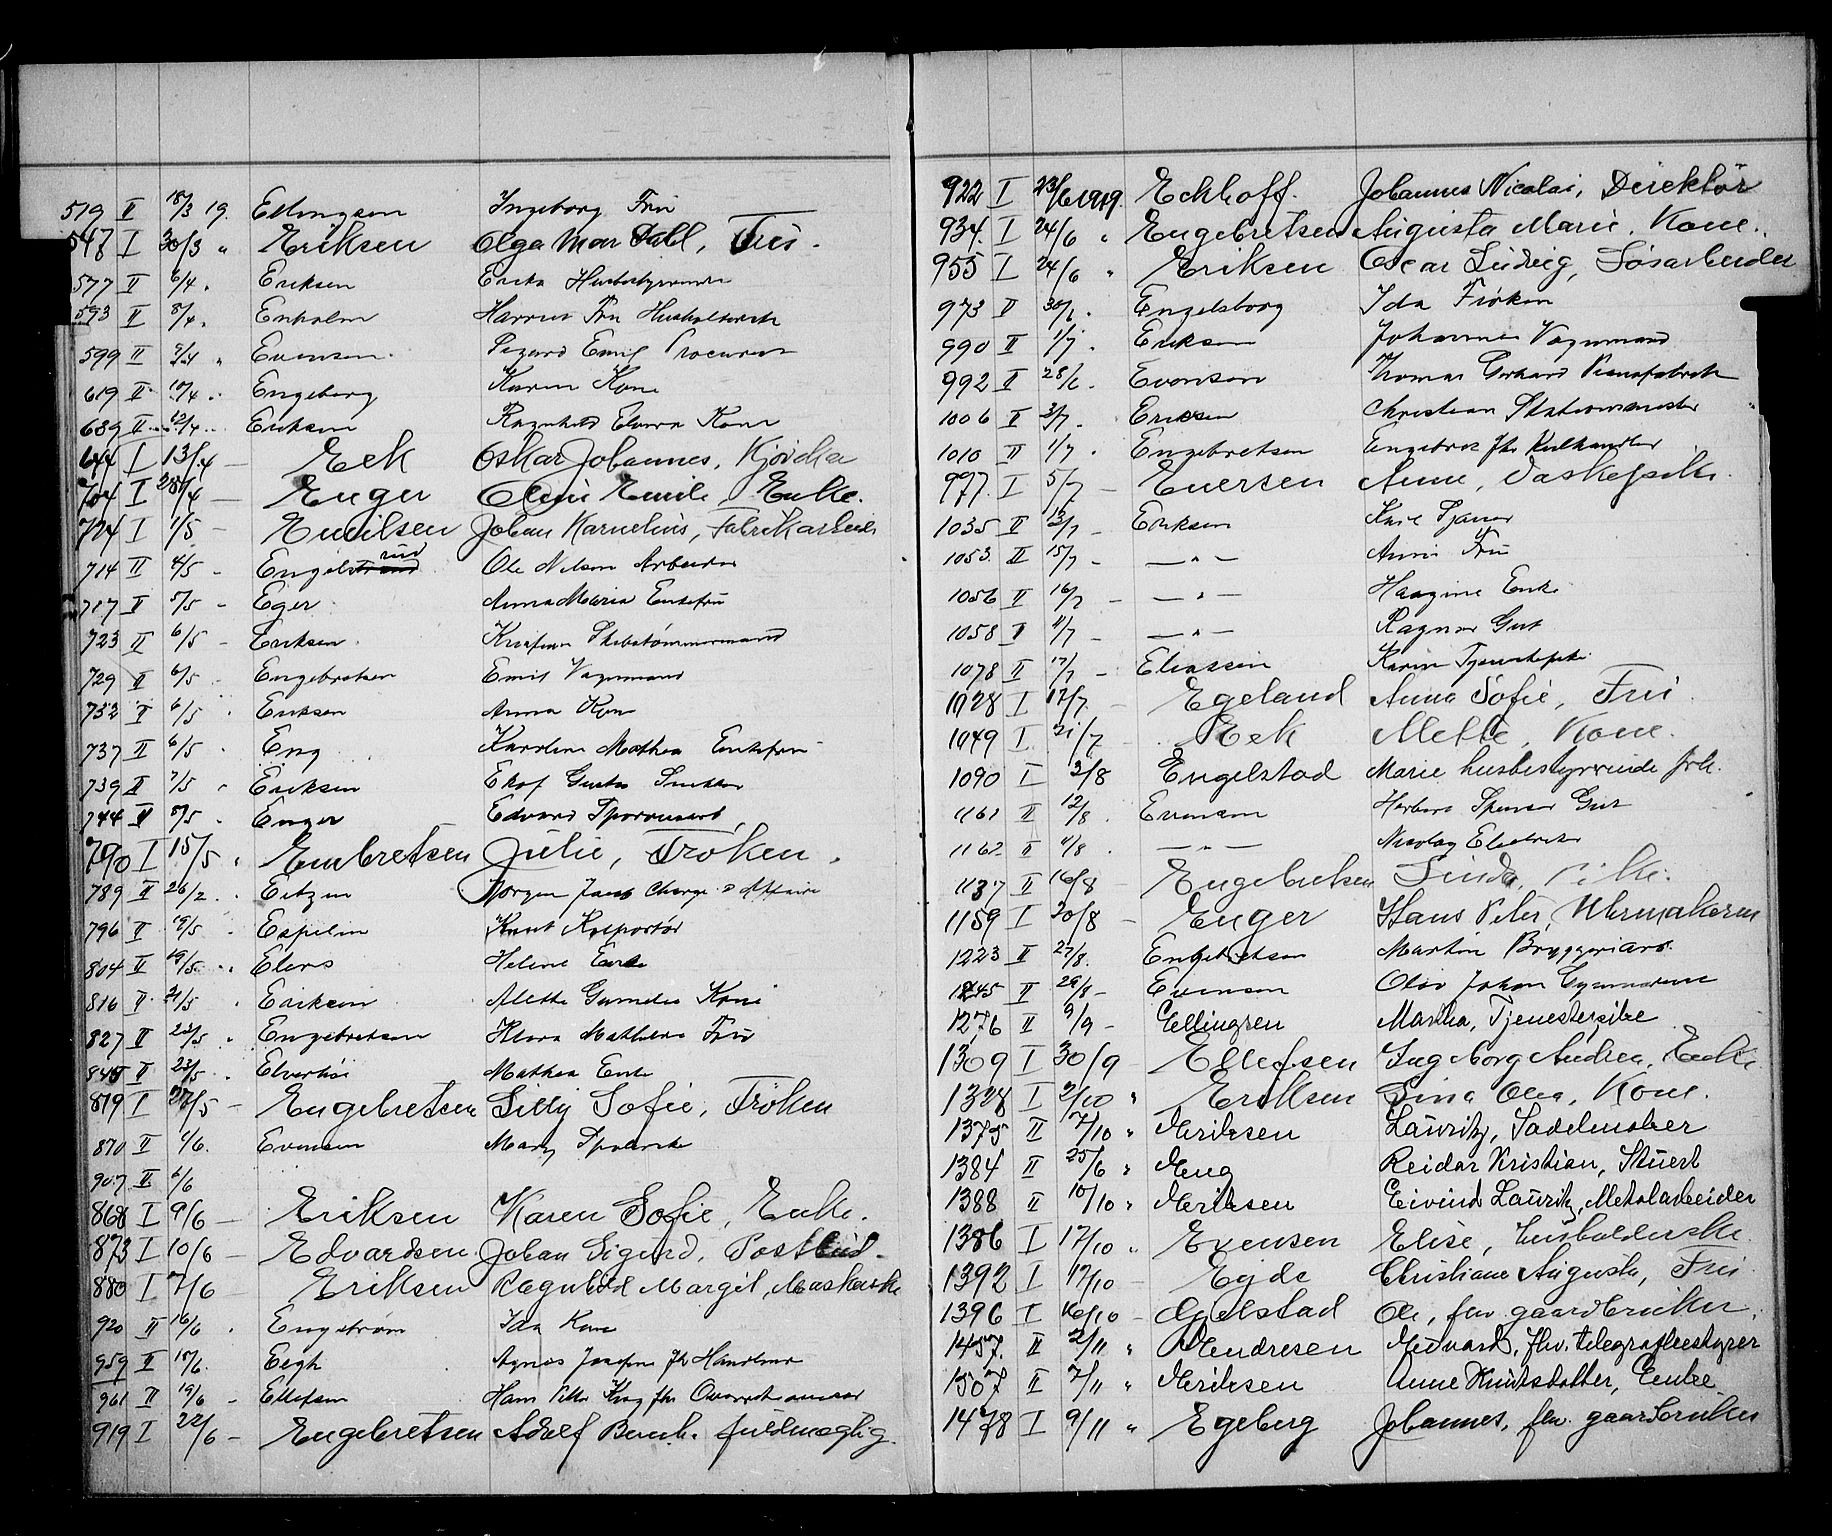 519 II 18/3 19. Ellingsen Ingeborg Fru
547 I 30/3 " Eriksen Olga Mar Dahl, Fru.
577 II 6/4 . Eriksen Ericka Husbestyrerinde
593 II 8/4. Enholm Harriet Fru Husholderske
599 II 9/4 " Evensen. Emil Procurist
619 II 10/4 . Engeborg Karen Kone
639 II 12/4 .. Eriksen Ragnhild Elvira Kone
644 I 13/4 — Eek Oskar Johannes,
704 I 28/4 — Enger Oline Emilie, Enke.
724 I 1/5 — Emilsen Johan Kornelius, Fabrikarbeider
714 II 4/5 - Engelsrud Ole Nilsen Arbeider
717 II 5/5 - Eger Anna Maria Enkefru
723 II 6/5 - Eriksen. Skibstømmermand
729 II 6/5 . Engebretsen Emil Vognmand
732 II 6/5 . Eriksen Anna Kone
737 II 6/5 . Eng Karoline Mathea Enkefru
739 II 7/5 . Eriksen Gustav Snekker
744 II 8/5 . Enger Edvard
790 I 15/5 . Embretsen Julie, Frøken.
789 II 26/2 . Eitzen Jørgen Jacob Charge d Affaire
796 II 19/5 . Espelin Knut Kolportør
804 II 19/5 .. Elers Helene Enke
816 II 21/5 . Eriksen Alette Gurine Kone
827 II 22/5 . Engebretsen Klara Mathilde Fru
845 II 23/5 . Elverhøi Mathea Enke
819 I 27/5 — Engebretsen Lilly Sofie, Frøken
870 II 4/6. Evensen Mary
907 II 6/6
868 I 9/6 — Eriksen Karen Sofie, Enke.
873 I 10/6 — Edvardsen Johan Sigurd, Postbud.
880 I 7/6 — Eriksen Ragnhild Margit,
920 II 16/6 . Engstrøm Ida Kone
959 II 18/6. Eegh Agnes Josefine
961 II 19/6 - Ellefsen Hans Peter Krog fhv
919 I 22/6 — Engebretsen Adolf Bernh. fuldmægtig.
922 I 23/6 1919. Eckhoff. Johannes Nicolai, Direktør
934. I 24/6 " Engebretsen Augusta Marie. Kone.
955 I 24/6 " Eriksen Oscar Ludvig, Løsarbeider
973 II 30/6 . Engelsborg Ida Frøken
990 II 1/7 . Eriksen Johannes Vognmand
992 II 28/6 . Evensen Thomas Gerhard Pianofabrik
1006 II 3/7 . Eriksen Christian Stationsmester
1010 II 1/7 . Engebretsen Engebret fhv Kulhandler
997. I 5/7 — Evensen Anne, Vaskepike.
1035 II 12/7 - Eriksen
1053 II 15/7 - — " — Anna Fru
1056 II 16/7 - — " — Haagine Enke
1058 II 11/7 - — " — Ragnar Gut
1078 II 17/7 - Eliassen Karen Tjenestepike
1028 I 17/7 — Egeland Anna Sofie, Fru
1049 I 21/7 - Eek Mette, Kone.
1090 I 2/8 Engelstad Marie husbestyrerinde frk.
1161 II 12/8 . Evensen Herbert Spencer Gut
1162 II 11/8 . — " — Nicolay
1137 II 16/8 - Engebretsen Pike.
1159 I 20/8 - Enger Hans Peter, Uhrmakerm
1223 II 27/8. Engebretsen Martin Bryggeriarb.
1245 II 29/8 - Evensen Olav Johan
1276 II 9/9 - Ellingsen Martha, Tjenestepike
1309 I 30/9 Ellefsen Ingeborg Andrea, Enke.
1328 I 2/10 " Eriksen Lina Olea, Kone.
1375 II 7/10 " Eriksen Lauritz, Sadelmaker
1384 II 25/6 " Eng Reidar Kristian, Stuert
1388 II 10/10 " Eriksen Eivind Lauritz, Metalarbeider
1386 I 17/10 " Evensen Elise, Husholderske.
1392 I 17/10 — Eyde Christiane Augusta, Fru
1396 I 16/10 — Egelstad Ole, fhv. gaardbruker.
1457. II 2/11 " Endresen Edvard, fhv. telegrafbestyrer
1507 II 7/11 " Eriksen Anne Knutsdatter, Enke
1478 I 9/11 " Egeberg Johannes, fhv. gaardbruker